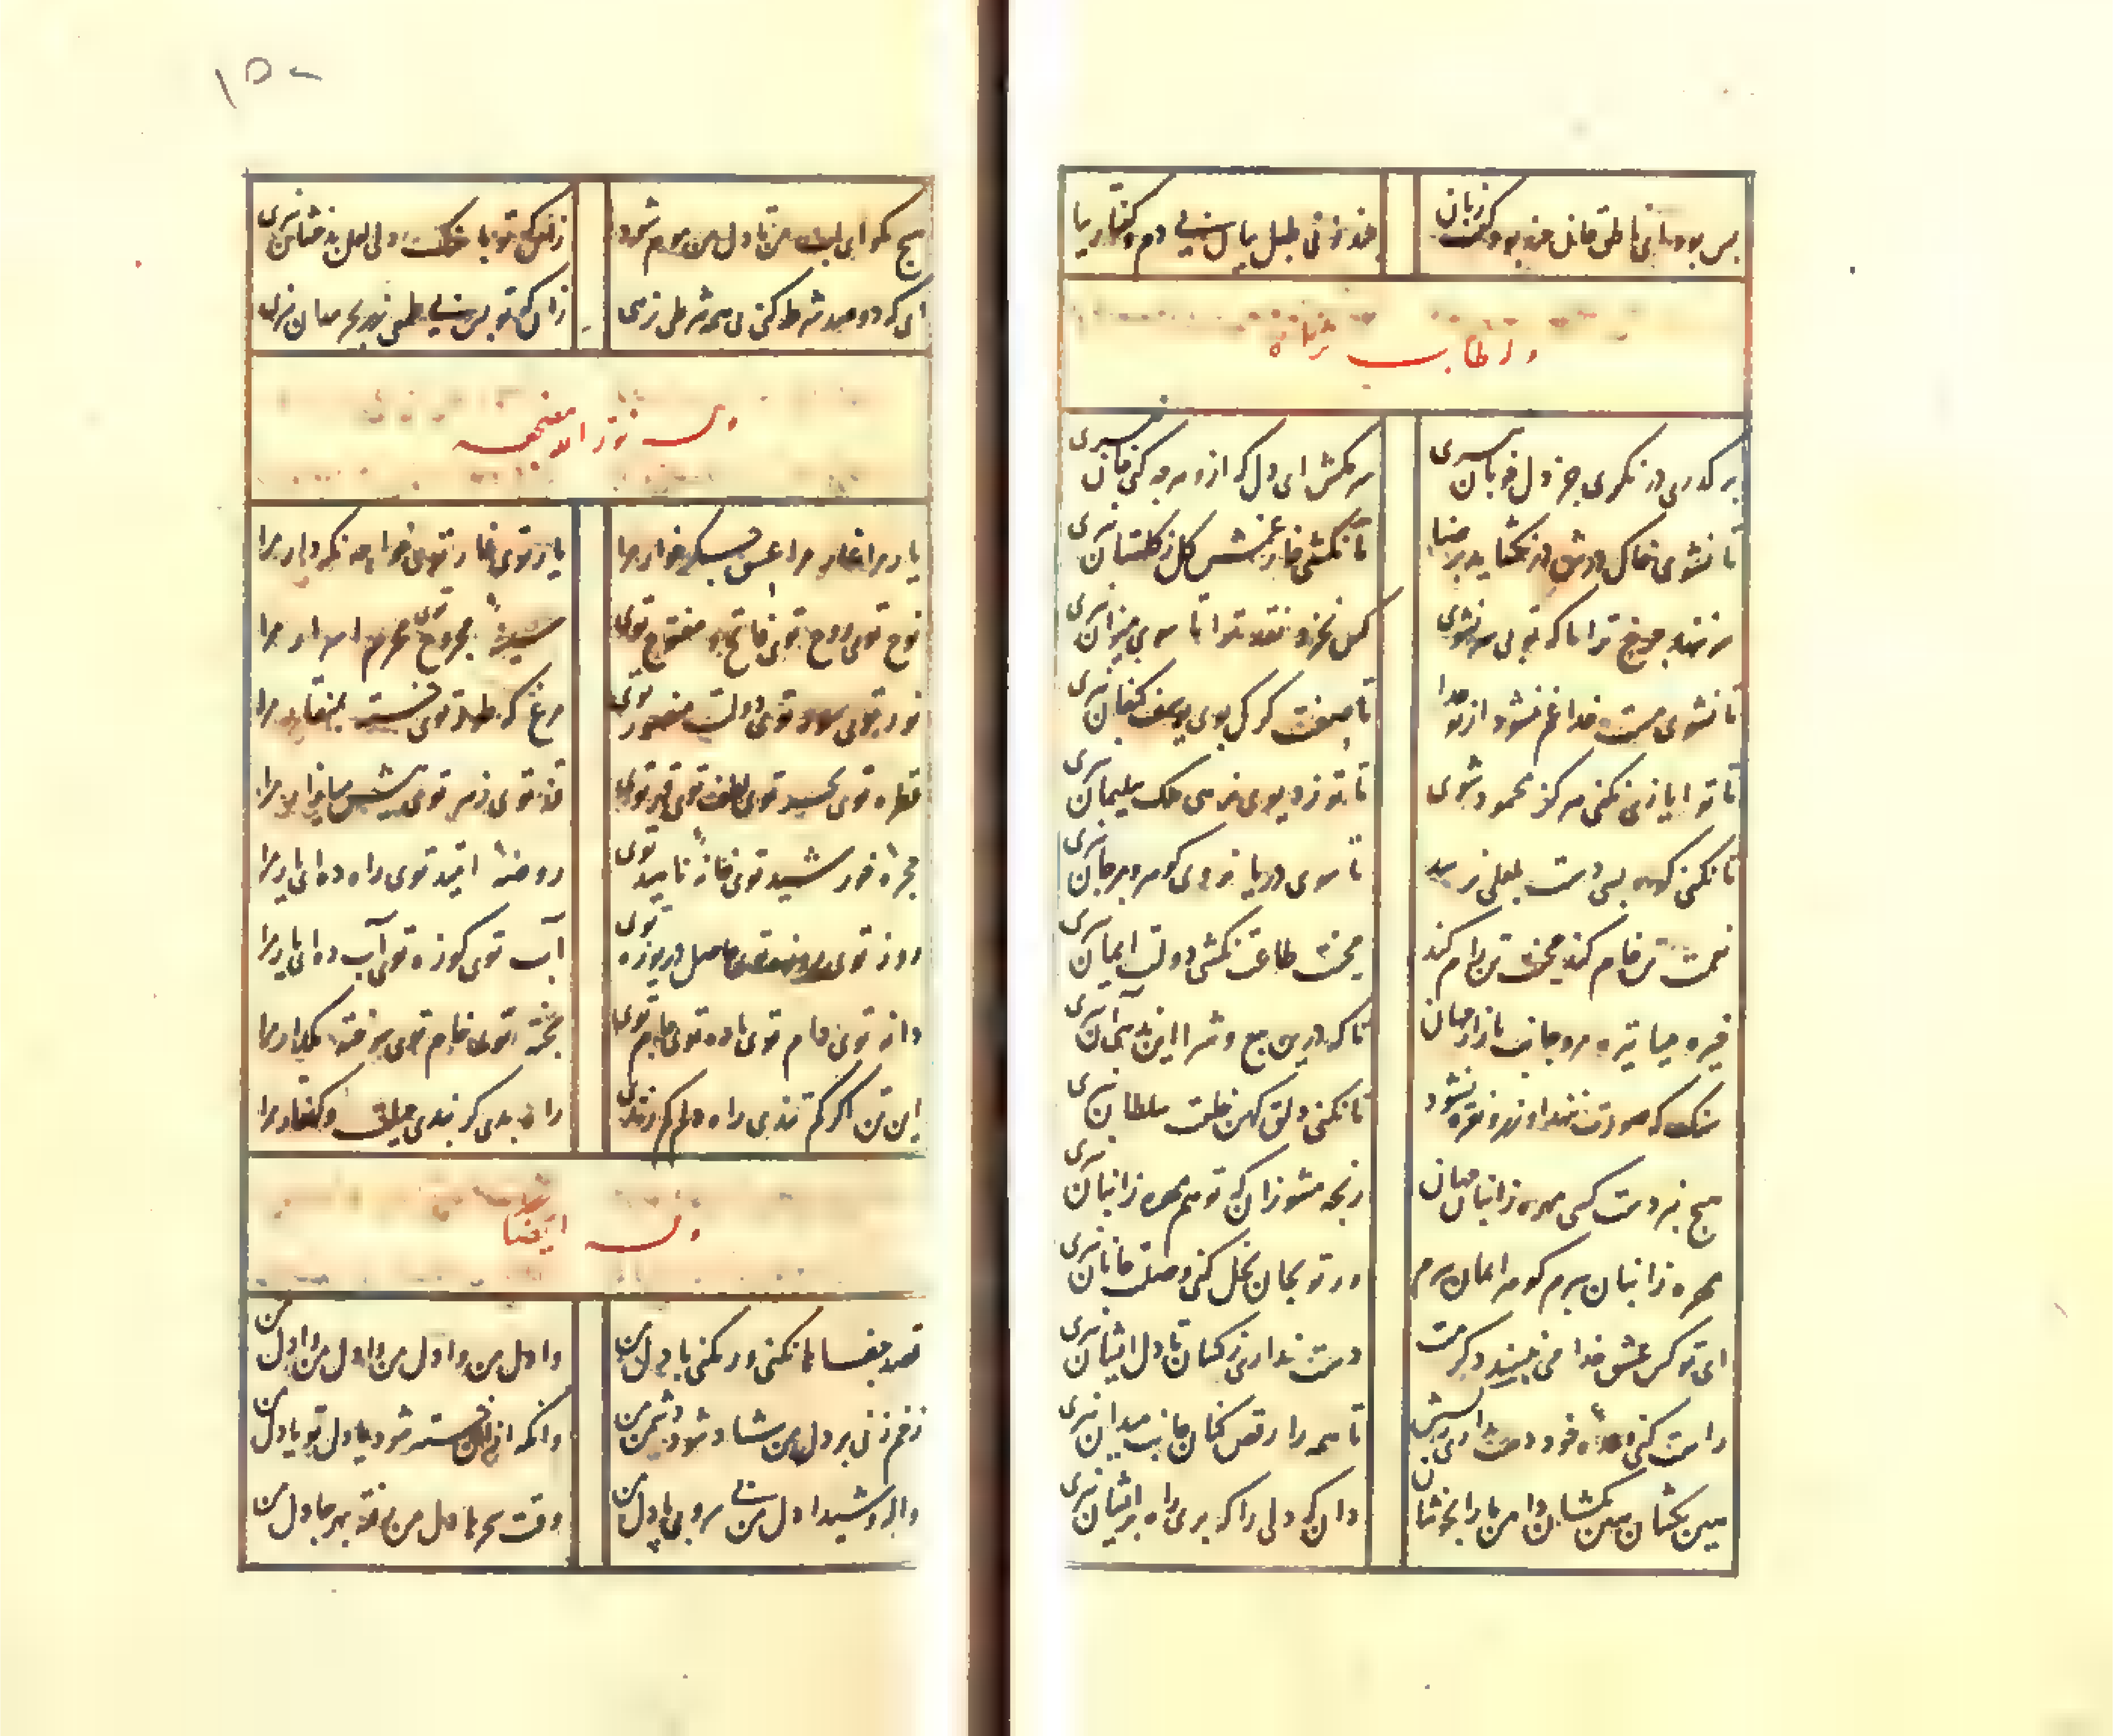 بس بود ای ناطق جان چند بود گفت زبان
چند زنی طبل بیان بی دم و گفتار بیا
وله طاب ثراه
بر گذری درنگری جز دل خوبان نبری
سر مکش ای دل که ازو هر چه کنی جان نبری
تا نشوی خاک درش در نگشاید برضا
تا نکشی خار غمش گل ز گلستان نبری
سر ننهد چرخ ترا تا که تو بی سر نشوی
کس نخرد نقد ترا تا سوی میزان نبری
تا نشوی مست خدا غم نشود از تو جدا
تا صفت گرگ دری یوسف کنعان نبری
تا تو ایازی نکنی هرگز محمود شوی
تا تو ز دیوی نرهی ملک سلیمان نبری
تا نکنی کوه بسی دست بلعلی نرسد
تا سوی دریا نروی گوهر و مرجان نبری
نعمت تن خام کند محنت تن رام کند
محنت طاعت نکشی دولت ایمان نبری
خیره میا تیره مرو جانب بازار جهان
تا که درین بیع و شرا این ندهی آن نبری
سنگ که صورت نشد او زر و نقره نشود
تا نکنی دلق کهن خلعت سلطان نبری
هیچ نبردست کسی مهره ز انبان جهان
رنجه مشو زان که تو هم مهره ز انبان نبری
مهره ز انبان نبرم گوهر ایمان ببرم
ور تو بجان بخل کنی وصلت جانان نبری
ای کشش عشق خدا می ننشیند کرمت
دست نداری ز کشان تا دل ایشان نبری
راست کنی وعده خود دست نداری ز کشش
تا همه را رقص کنان جانب میدان نبری
هین بکشان هین بکشان دامن ما را بخوشان
زان که دلی را که بری راه پریشان نبری
۱۵۰
هیچ مگو ای لب من تا دل من نرم شود
زان که تو با سنگ دلی لعل بدخشان نبری
ای که دو صد شرط کنی بی همه شرطی نزهی
زان که تو بس بی طمعی زر بحرمدان نبری
وله نور الله مضجعه
یار مرا غار مرا عشق جگرخوار مرا
یار توی غار توی خواجه نگهدار مرا
نوح توی روح توی فاتح و مفتوح توی
سینه مجروح توی محرم اسرار مرا
نور توی سور توی دولت منصور توی
مرغ که طور توی خسته بمنقار مرا
قطره توی بحر توی لطف توی قهر توی
قند توی زهر توی بیش میازار مرا
حجره خورشید توی خانه ناهید توی
روضه امید توی راه ده ای یار مرا
روز توی روزه توی حاصل دریوزه توی
آب توی کوزه توی آب ده ای یار مرا
دانه توی دام توی باده توی جام توی
پخته توی خام توی سوخته بگذار مرا
این تن اگر کم تندی راه دلم کم زندی
راه بدی گر نبدی میلت و گفتار مرا
وله ایضا
قصد جفاها نکنی ور بکنی با دل من
وا دل من وا دل من وا دل من وا دل من
زخم زنی بر دل من شاد شود دشمن من
وانکه ازین خسته شود یا دل تو یا دل من
واله و شیدا دل من بی سر و بی پا دل من
وقت سحرها دل من رفته بهر جا دل من